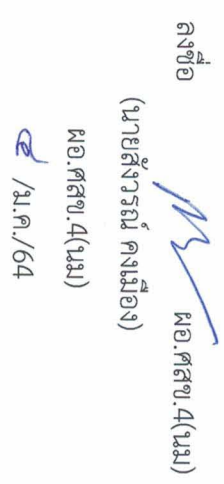 ลงชื่อ ผอ.ศสข.4(นม)
(นายสังวรณ์ คงเมือง)
ผอ.ศสข.4(นม)
๕ /ม.ค./64